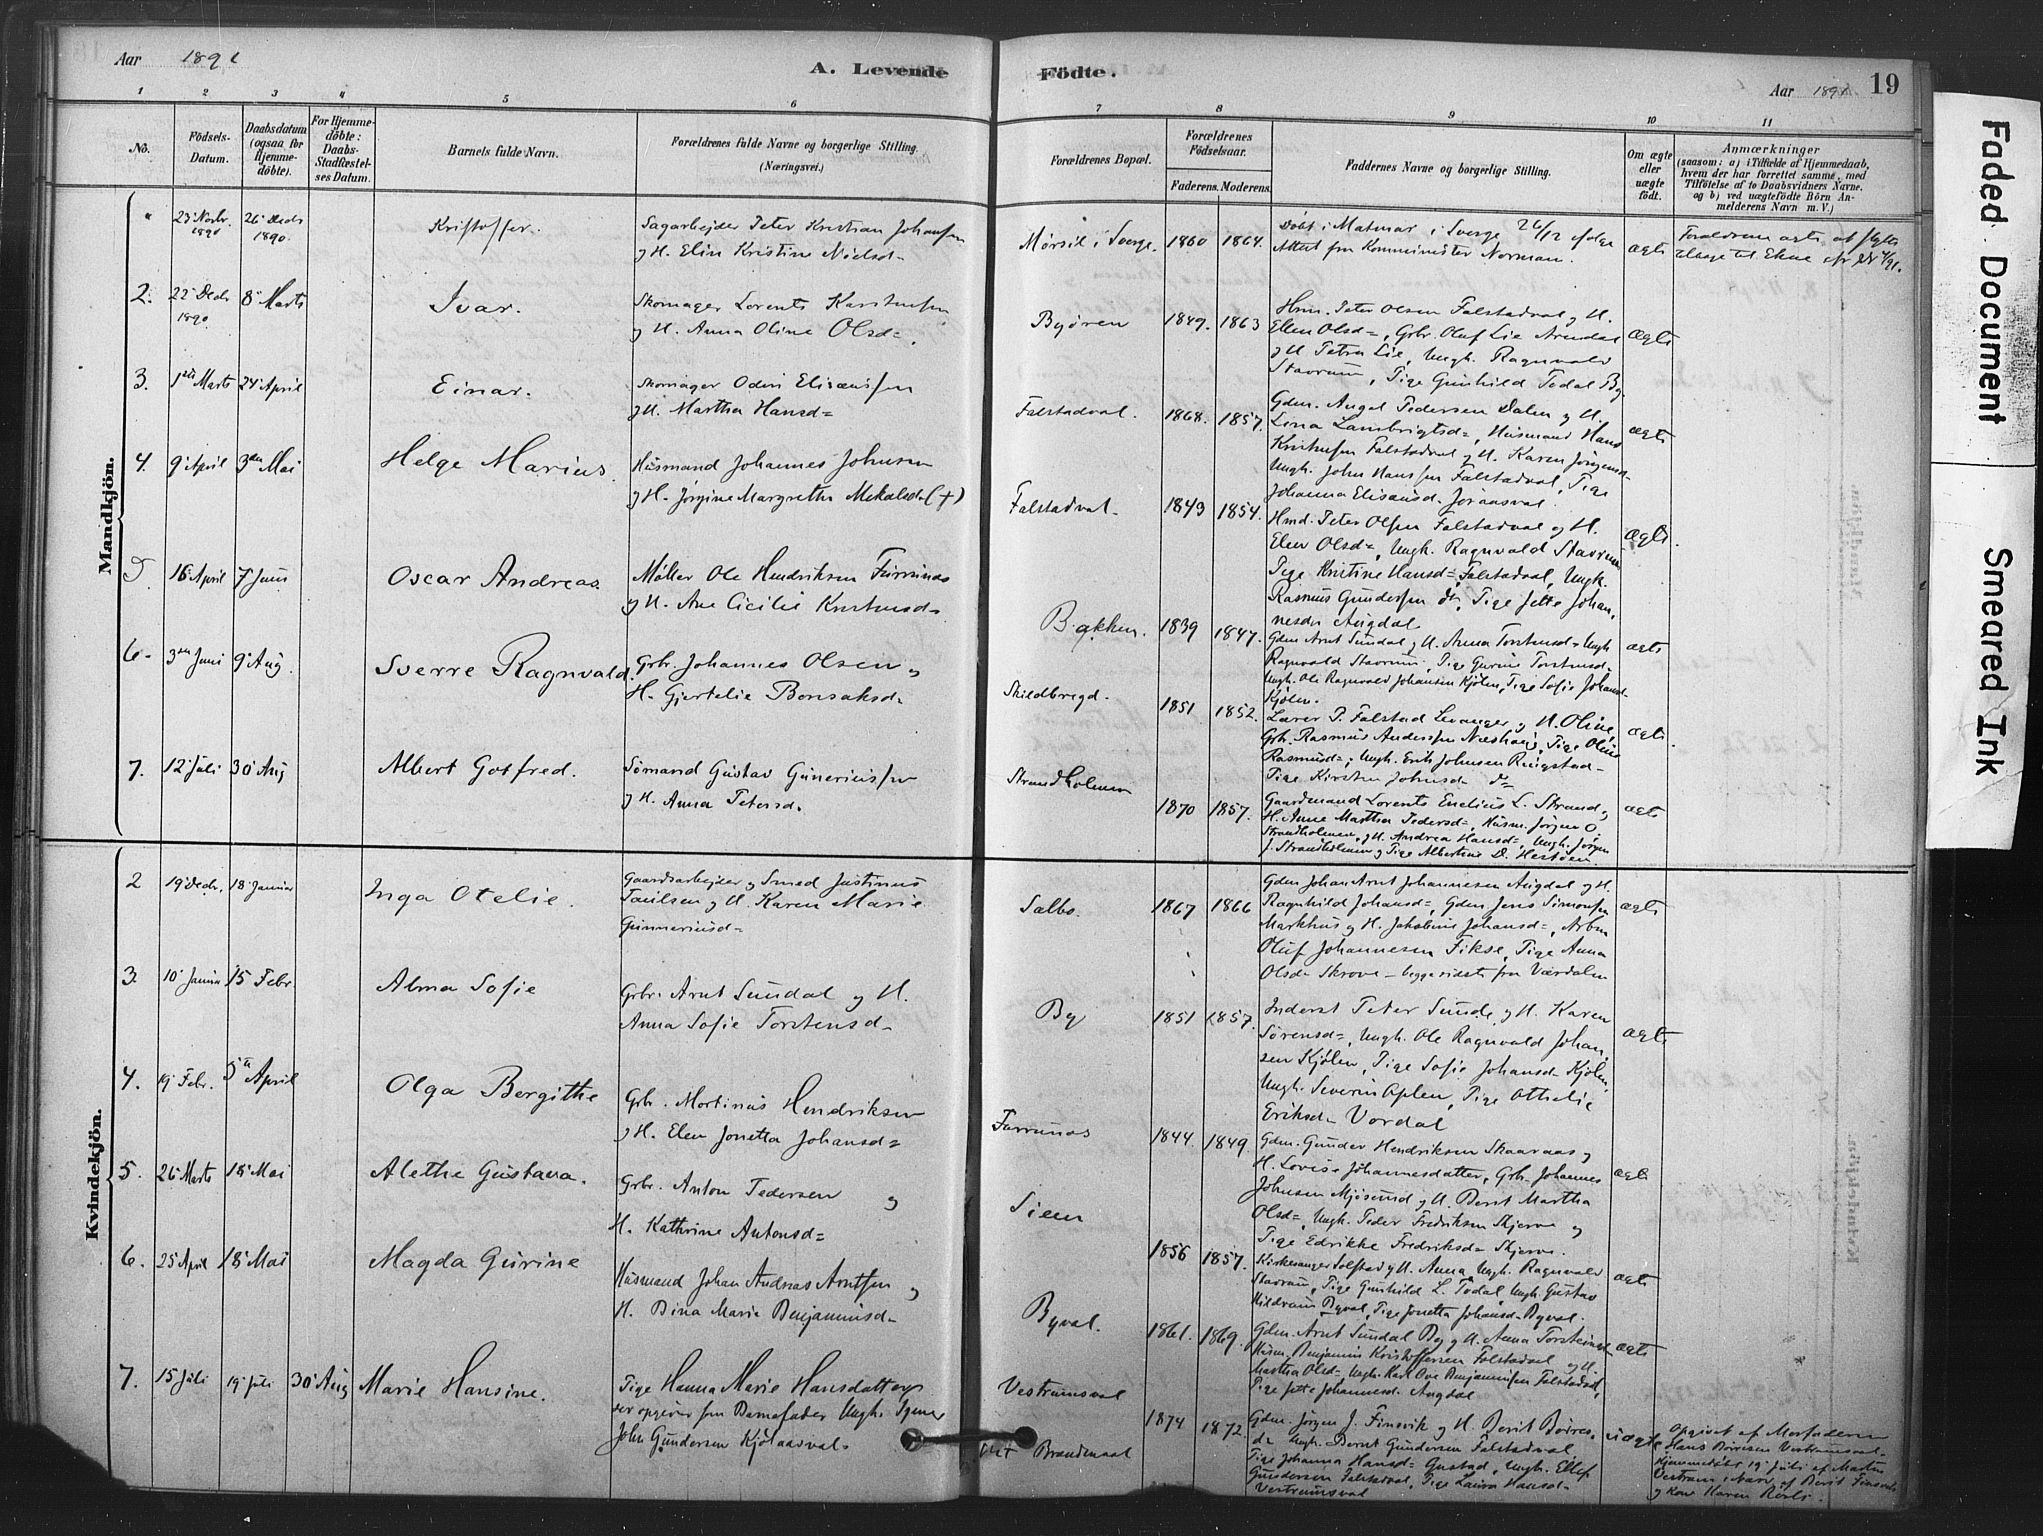 Aar 1891
A. Levende
Födte.
Aar 1891.
19
1 2 3 4 5 6 7 8 9 10 11
No.
Födsels-Datum.
Daabsdatum (ogsaa for Hjemmedöbte).
For Hjemmedöbte: Daabs-Stadfæstelses Datum.
Barnets fulde Navn.
Forældrenes fulde Navne og borgerlige Stilling.
(Næringsvei.)
Forældrenes Bopæl.
Forældrenes Födselsaar.
Faderens. Moderens.
Faddernes Navne og borgerlige Stilling.
Om ægte eller uægte födt.
Anmærkninger
(saasom: a) i Tilfælde af Hjemmedaab,
hvem der har forrettet samme, med
Tilföielse af to Daabsvidners Navne,
og b) ved uægtefödte Börn Anmelderens Navn m. V.)
Mandkjön.
" 23 Novbr 1890 26 Decbr 1890.
Kristoffer.
Sagarbejder Peter Kristian Johansen
og H. Elin Kristine Nielsd=
Mörsil i Sverge. 1860 1864.
Döbt i Matmar i Sverge 26/12 ifølge
Attest fra Komminister Norman.
ægte
Forældrene agte at flytte
tilbage til Ekne
2. 22 Decbr 1890 8 Marts
Ivar.
Skomager Lorents Karstensen
og H. Anna Oline Olsd=.
Byören 1849. 1863
Hmn. Peter Olsen Falstadval og H.
Ellen Olsd=, Grbr. Oluf Lie Arendal
og H Petra Lie, Ungk. Ragnvald
Stavrum, Pige Gunhild Todal By.
ægte
3. 1ste Marts 24 April
Einar.
Skomager Odin Eliseussen
og H. Martha Hansd=
Falstadval. 1868. 1857.
Gdm. Angel Pedersen Dalen og H.
Lina Lambrigtsd=, Husmand Hans
Kristensen Falstadval og H. Karen Jörgensd.
Ungk. John Hanssen Falstadval, Pige
Johanna Eliseusd. Joraasval.
ægte
4. 9 April 3die Mai
Helge Marius.
Husmand Johannes Johnsen
og H. Jörgine Margrethe Mekalsd= (+)
Falstadval. 1849 1854.
Hmd. Peter Olsen Falstadval og H.
Elen Olsd=, Ungk. Ragnvald Stavrum
Pige Kristine Hansd= Falstadval, Ungk.
Rasmus Gundersen do, Pige Jette Johannesdr Augdal
ægte.
5 16 April 7 Juni
Oscar Andreas.
Møller Ole Hendriksen Furunes
og H. Ane Cicilie Kristensd=
Bakken. 1839 1847.
Gdm Arnt Sundal og H. Anna Torstensd= Ungk
Ragnvald Stavrum, Pige Gurine Torstensd=
Ungk. Ole Ragnvald Johansen Kjölen, Pige Sofie Johansd
Kjölen.
ægte
6. 3die Juni 9 Aug.
Sverre Ragnvald.
Grbr. Johannes Olsen og
H. Gjertelie Bonsaksd=
Skildbregd. 1851 1852.
Lærer P. Falstad Levanger og H. Oline,
Grb. Rasmus Anderssen Næshaug, Pige Oline
Rasmusd=, Ungk. Erik Johnsen Ringstad=
Pige Kirsten Johnsd= do
ægte.
7. 12 Juli 30 Aug
Albert Gotfred.
Sömand Gustav Guneriussen
og H. Anna Petersd.
Strandholmen 1870 1857.
Gaardmand Lorents Enelius L. Strand og
H. Anne Martha Pedersd=, Husm. Jörgen O.
Strandholmen, og H. Andrea Hansd=, Ungk. Jörgen
J. Strandholmen og Pige Albertine D. Hestöen
ægte
Kvindekjön.
2 19 Decbr. 18 Januar
Inga Otelie.
Gaardsarbejder og Smed Justinus
Paulsen og H. Karen Marie
Gunneriusd=
Salbo. 1867 1866
Gdm Johan Arnt Johannesen Augdal og H.
Ragnhild Johansd=, Gdm. Jens Simonsen
Markhus og H. Jakobine Johansd=, Arbm
Oluf Johannesen Fikse, Pige Anna
Olsd= Skrove – begge sidste fra Værdalen
ægte
3. 10 Januar 15 Febr.
Alma Sofie
Grbr. Arnt Sundal og H.
Anna Sofie Torstensd=
By 1851 1857.
Inderst Peter Sunde, og H. Karen
Sörensd=, Ungk. Ole Ragnvald Johansen Kjölen, Pige Sofie Johansd= Kjölen,
Ungk. Severin Oplen, Pige Othelie
Eriksd= Vordal
ægte
4. 19 Febr. 5te April
Olga Bergithe
Grbr. Mortinus Hendriksen
og H. Elen Jonetta Johansd=
Furrunes 1844. 1849.
Gdm. Gunder Hendriksen Skaaraas og
H. Lovise Johannesdatter, Grb. Johannes
Johnsen Mjösund og H. Berit Martha
Olsd=, Ungk. Peder Fredriksen Skjerve og
Pige Edrikke Fredriksd= Skjerve.
ægte
5. 26 Marts 18 Mai
Alethe Gustava.
Grbr. Anton Pedersen og
H. Kathrine Antonsd=
Sieen 1856 1857.
Kirkesanger Solstad og H. Anna, Ungk. Ragnvald
Stavrum, Pige Gunhild L. Todal, Ungk. Gustav
Hildrum Byval, Pige Jonetta Johansd= Byval.
ægte
6. 25 April 18 Mai
Magda Gurine
Husmand Johan Andreas Arntsen og
H. Bina Marie Benjaminsd=
Byval. 1861. 1869.
Gdm. Arnt Sundal By og H. Anna Torstensd=
Husm. Benjamin Kristoffersen Falstadval og H.
Martha Olsd= Ungk. Karl Ove Benjaminsen Falstadval,
Pige Jette Johannesd= Augdal
ægte
7. 15 Juli 19 Juli 30 Aug
Marie Hansine.
Pige Hanna Marie Hansdatter
der opgiver som Barnefader Ungk.
John Gundersen Kjölaasval.
Vestrumsval
Brandmaal 1874 1872
Gdm. Jörgen J. Finsvik og H. Berit Börresd=, Ungk. Bernt Gundersen Falstadval
Pige Johanna Hansd= Gustad, Ungk. Ellef
Gundersen Falstadval, Pige Laura Hansd=
Vestrumsval
uægte
Opgivet af Morfaderen
Hans Börresen Vestrumsval.
Hjemmedöbt 19 Juli af Martin
Vestrum i Nærv. af Berit Finsvik
og Kone Karen Röstö.
Faded Document
Smeared Ink